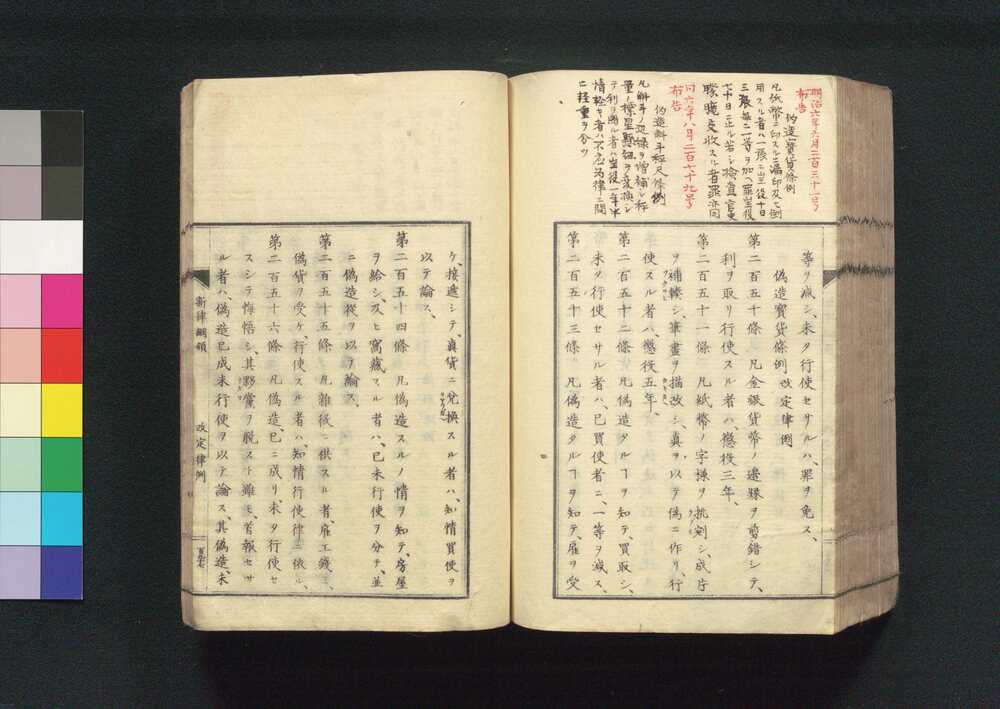 明治六年六月二百三十一号
布告
偽造寳貨條例
凡紙幣ニ印スルニ漏印及ヒ倒
用スル者ハ一張ニ笞役十日
三張毎ニ一等ヲ加ヘ罪笞役
七十日ニ止ル若シ檢査官吏
朦朧受收スル者罪亦同
同六年八月二百七十九号
布告
偽造斛斗秤尺條例
凡斛斗ノ邊緣ヲ増補シ秤
量ノ標星
テ利ヲ圖ル者ハ笞役一年半
情輕キ者ハ不應為律ニ問
ニ軽重ヲ分ツ
等ヲ減シ、未タ行使セサルハ、罪ヲ免ス、
偽造寳貨條例 改定律例
第二百五十條 凡金銀貨幣ノ邊緣ヲ剪錯シテ、
利ヲ取リ行使スル者ハ、懲役三年、
第二百五十一條 凡紙幣ノ字樣ヲ挑剜シ、或ハ片
ヲ補輳シ、筆畫ヲ描改シ、真ヲ以テ偽ニ作リ、行
使スル者ハ、懲役五年、
第二百五十二條 凡偽造タルヿヲ知テ、買取シ、
未タ行使セサル者ハ、已買使者ニ、一等ヲ減ス、
第二百五十三條 凡偽造タルヿヲ知テ、雇ヲ受
ケ、接遞シテ、真貨ニ兌換スル者ハ、知情買使ヲ
以テ論ス、
第二百五十四條 凡偽造スルノ情ヲ知テ、房屋
ヲ給シ、及ヒ窩藏スル者ハ、已未行使ヲ分テ、並
ニ偽造從ヲ以テ論ス、
第二百五十五條 凡雜紙ニ供スル者、雇工錢ニ、
偽貨ヲ受ケ行使スル者ハ、知情行使律ニ依ル、
第二百五十六條 凡偽造、已ニ成リ、未タ行使セ
スシテ悔悟シ、其夥黨ヲ脱スト雖モ、首報セサ
ル者ハ、偽造已成未行使ヲ以テ論ス、其偽造、未
新律綱領 改定律例